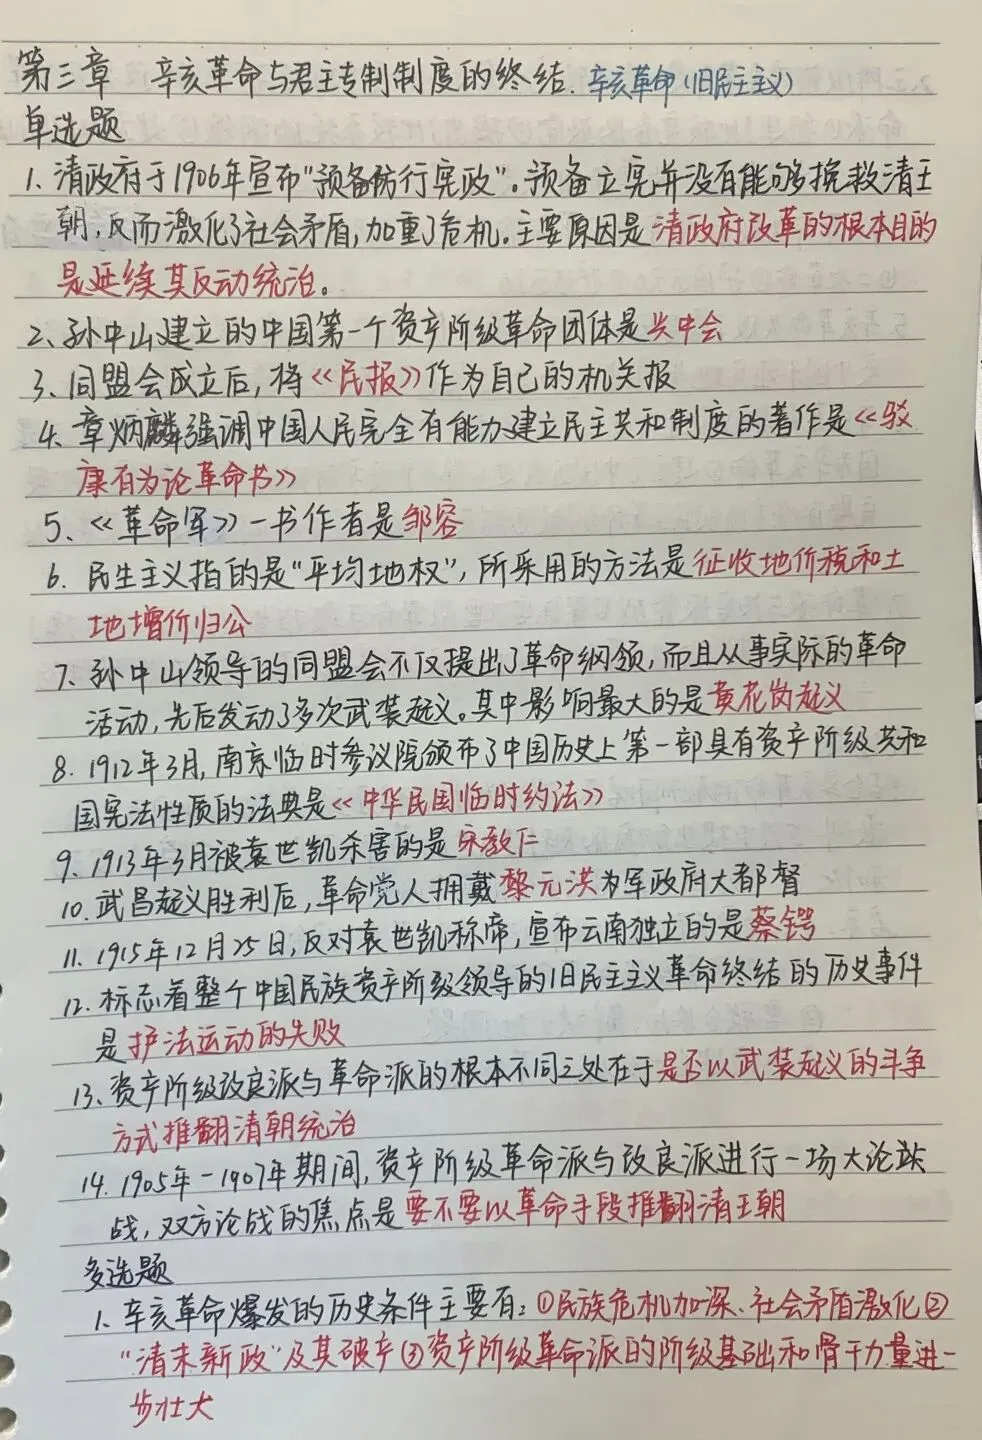 第三章 辛亥革命与君主专制制度的终结. 辛亥革命(旧民主主义)
单选题
1、清政府于1906年宣布"预备仿行宪政"。预备立宪并没有能够挽救清王
朝,反而激化了社会矛盾,加重了危机。主要原因是清政府改革的根本目的
是延续其反动统治。
2、孙中山建立的中国第一个资产阶级革命团体是兴中会
3、同盟会成立后,将《民报》作为自己的机关报
4、章炳麟强调中国人民完全有能力建立民主共和制度的著作是《驳
康有为论革命书》
5、《革命军》一书作者是邹容
6. 民生主义指的是"平均地权",所采用的方法是征收地价税和土
地增价归公
7、孙中山领导的同盟会不仅提出了革命纲领,而且从事实际的革命
活动,先后发动了多次武装起义。其中影响最大的是黄花岗起义
8. 1912年3月,南京临时参议院颁布了中国历史上第一部具有资产阶级共和
国宪法性质的法典是《中华民国临时约法》
9. 1913年3月被袁世凯杀害的是宋教仁
10. 武昌起义胜利后,革命党人拥戴黎元洪为军政府大都督
11. 1915年12月25日,反对袁世凯称帝,宣布云南独立的是蔡锷
12. 标志着整个中国民族资产阶级领导的旧民主主义革命终结的历史事件
是护法运动的失败
13、资产阶级改良派与革命派的根本不同之处在于是否以武装起义的斗争
方式推翻清朝统治
14. 1905年-1907年期间,资产阶级革命派与改良派进行一场大论战
战,双方论战的焦点是要不要以革命手段推翻清王朝
多选题
1、辛亥革命爆发的历史条件主要有:①民族危机加深、社会矛盾激化②
"清末新政"及其破产③资产阶级革命派的阶级基础和骨干力量进一
步壮大